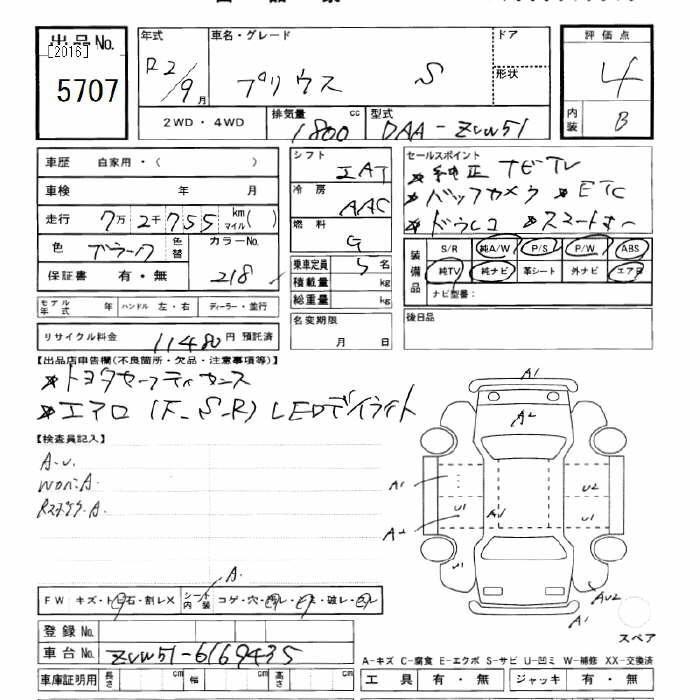 出品No.
[2016]
5707
年式
R2/9月
車名・グレード
プリウス S
ドア
形状
評価点
4
内装 B
2WD・4WD
排気量 1800 cc
型式 DAA-ZVW51
車歴 自家用・( )
車検 年 月
走行 7万2千755 km マイル( )
色 ブラック 色替
カラーNo. 218
保証書 有・無
シフト IAT
冷房 AAC
燃料 G
乗車定員 5名
積載量 kg
総重量 kg
名変期限
月 日
セールスポイント
★純正ナビTV
★バックカメラ ★ETC
★ドラレコ ★スマートキー
装備品
S/R 純A/W P/S P/W ABS
純TV 純ナビ 革シート 外ナビ エアB
ナビ型番:
後日品
モデル年式 年 ハンドル 左・右 ディーラー・並行
リサイクル料金 11480円 預託済
【出品店申告欄(不良箇所・欠品・注意事項等)】
★トヨタセーフティセンス
★エアロ(F_S_R) LEDデイライト
【検査員記入】
A.U.
A1
A2
A1
U2
U1
AU
A2
U1
U1
AU2
A1
A.
FW キズ・トビ石・割レX シート内装 コゲ・穴・汚レ・スレ・破レ・
登録No.
車台No. ZVW51-6169435
スペア
A-キズ C-腐食 E-エクボ S-サビ U-凹ミ W-補修 XX-交換済
車庫証明用 長さ cm 幅 cm 高さ cm
工具 有・無 ジャッキ 有・無